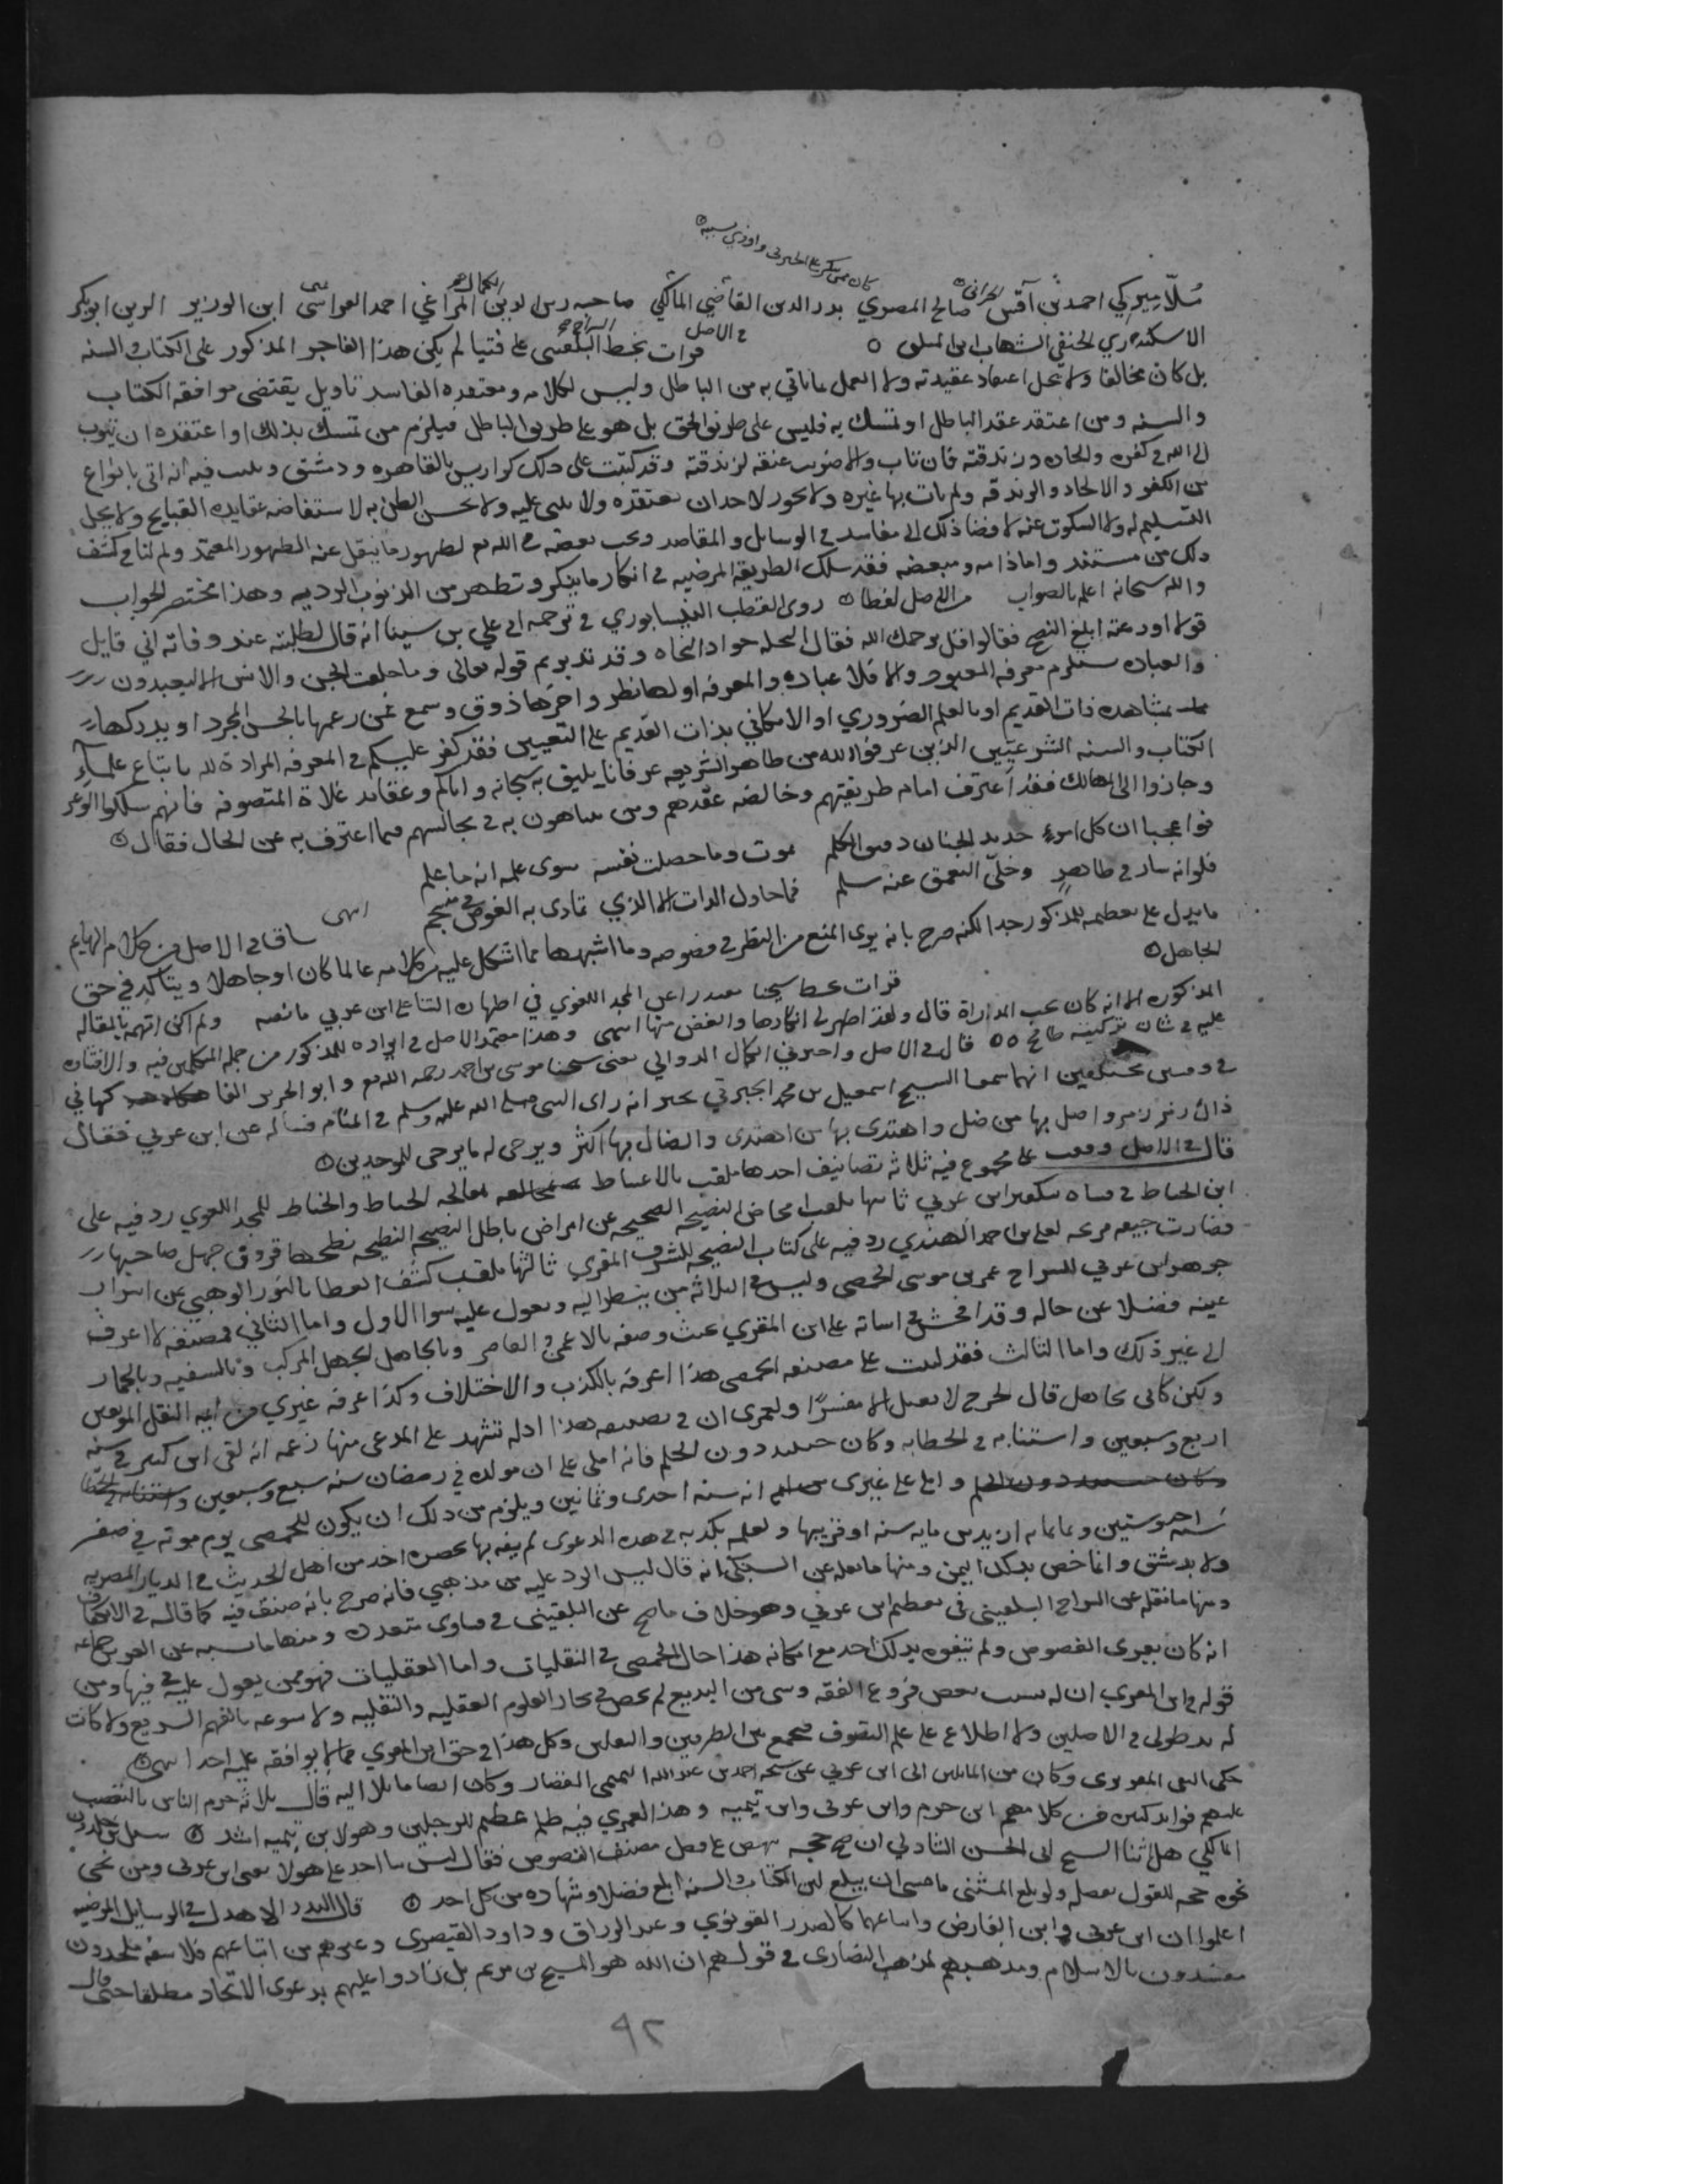 كان ممن ينكر على الجبرتي واوذي بسببه
مُلّا بيركي احمد بن آقبرس الحراني صالح المصري بدر الدين القاضي المالكي صاحبه زين الدين المراغي الكمال احمد ابن الوزير الزين ابو بكر
الاسكندري الحنفي الشهاب ابن في الاصل قرات بخط البلقيني السراج على فتيا لم يكن هذا الفاجر المذكور على الكتاب والسنه
بل كان مخالفا ولا يحل اعتقاد عقيدته ولا العمل بما ياتي به من الباطل وليس لكلامه ومعتقده الفاسد تاويل يقتضي موافقه الكتاب
والسنه ومن اعتقد عقد الباطل او تمسك به فليس على طريق الحق بل هو على طريق الباطل فيلزم من تمسك بذلك او اعتقده ان يتوب
الى الله من كفره والحاده وزندقته فان تاب والا ضربت عنقه لزندقته وقد كتبت على ذلك كراريس بالقاهره ودمشق وبينت فيه انه اتى بانواع
من الكفر والالحاد والزندقه ولم يات بها غيره ولا يجوز لاحد ان يعتقده ولا يثني عليه ولا يحسن الظن به لاستفاضه عقايده القبايح ولا يحل
التسليم له ولا السكوت عنه لافضا ذلك الى مفاسد في الوسايل والمقاصد ويجب بعضه في الله تع لظهور ما ينقل عنه الظهور المعتمد ولم لنا في كشف
ذلك من مستند واما ذامه ومبغضه فقد سلك الطريقه المرضيه في انكار ما ينكر وتطهر من الذنوب الرديه وهذا مختصر الجواب
والله سبحانه اعلم بالصواب من الاصل لفظا روى القطب النيسابوري في ترجمه ابي علي بن سينا انه قال لطلبته عند وفاته اني قايل
قولا اودعته ابلغ النصح فقالوا قل يرحمك الله فقال
والعباده ستلزم معرفه المعبود والا فلا عباده والمعرفه اولها نظر واخرها ذوق وسمع فمن زعمها بالحس المجرد او يدركها
بمشاهده ذات القديم او بالعلم الضروري او الامكاني بذات القديم على التعيين فقد كفر عليكم في المعرفه المراده لله باتباع علماء
الكتاب والسنه الشرعيين الذين عرفوا الله من ظاهر الشريعه عرفانا يليق به سبحانه واياكم وعقايد غلاة المتصوفه فانهم سلكوا الوعر
وجازوا الى المهالك فقد اعترف امام طريقتهم وخالصه عقدهم ومن يتباهون به في مجالسهم بما اعترف به عن الحال فقال
فوا عجبا ان كل امرء حديد الجنان دقيق الكلم يموت وما حصلت نفسه سوى علمه انه ما علم
فلو انه سار في ظاهر وخلّى التعمق عنه سلم فما حاول الذات الا الذي تمادى به الغوص انتهى
ما يدل على تعظيمه للمذكور جدا لكنه صرح بانه يرى المنع من النظر في فصوصه وما اشبهها مما اشكل عليه من كلامه عالما كان او جاهلا ويتاكد في حق
الجاهل
قرات بخط شيخنا معتذرا عن المجد اللغوي في اظهاره الثنا على ابن عربي ما نصه ولم اكن اتهمه بالمقاله
المذكوره الا انه كان يحب المداراة قال ولقد اظهر لي انكارها والغض منها انتهى وهذا معتمد الاصل في ايراده للمذكور من جمله المتكلمين فيه والافتاده
عليه في شان تزكيته قال في الاصل واخبرني الكمال الدوالي يعني شيخنا موسى بن احمد رحمه الله تع وابو الحرير
في وقتين مختلفين انهما سمعا الشيخ اسمعيل بن محمد الجبرتي يخبر انه راى النبي صلى الله عليه وسلم في المنام فساله عن ابن عربي فقال
ذاك رفر زمر واضل بها من ضل واهتدى بها من اهتدى والضال بها اكثر ويرجى له ما يرجى للموحدين
قال في الاصل وقفت على مجموع فيه ثلاثه تصانيف احدها ملقب بالاغتباط بمعالجه الخياط للمجد اللغوي رد فيه على
ابن الخياط في فتياه بتكفير ابن عربي ثانيها ملقب النصيحه الصحيحه عن امراض باطل النصيحه النطيحه نطحها قروق جهل صاحبها
فصارت جيفه مريحه لعلي بن احمد الهندي رد فيه على كتاب النصيحه للشرف المقري ثالثها ملقب كشف الغطا بالنور الوهبي عن اسرار
جوهر ابن عربي للسراج عمر بن موسى الحمصي وليس في الثلاثه من ينظر اليه ويعول عليه سوا الاول واما الثاني فمصنفه لا اعرف
عينه فضلا عن حاله وقد افحش في اساته على ابن المقري بحيث وصفه بالاعمى القاصر وبالجاهل الجهل المركب وبالسفيه وبالحمار
الى غير ذلك واما الثالث فقد كتبت على مصنفه الحمصي هذا اعرفه بالكذب والاختلاف وكذا عرفه غيري من ايمه النقل الموثقين
ولكن كاني بجاهل قال الجرح لا يقبل الا مفسرًا ولعمري ان في تصنيفه هذا ادله تشهد على المدعى منها زعمه انه لقى ابن كثير في سنه
اربع وسبعين واستنابه في الخطابه وكان حينئذ دون الحلم فانه املى علي ان مولده في رمضان سنه سبع وسبعين
واملى على غيري انه سنه احدى وثمانين ويلزم من ذلك ان يكون للحمصي يوم موته في صفر
سنه احد وستين وثمانمايه ازيد من مايه سنه او قريبها ولعله يكذبه في هذه الدعوى لم يفه بها بحضره احد من اهل الحديث في الديار المصريه
ولا بدمشق وانما خص بذلك اليمن ومنها ما نقله عن السبكي انه قال ليس الرد عليه من مذهبي فانه صرح بانه صنف فيه كما قاله في
ومنها ما نقله عن السراج البلقيني في تعظيم ابن عربي وهو خلاف ما صح عن البلقيني في فتاوى متعدده ومنها ما نسبه عن
انه كان يقرى الفصوص ولم يتفوه بذلك احد مع امكانه هذا حال الحمصي في النقليات واما العقليات فهو ممن يعول عليه فيها ومن
قوله في ابن المقري ان له بسبب بعض فروع الفقه وشى من البديع لم يخض في بحار العلوم العقليه والنقليه ولا سوعه بالفهم السريع ولا كانت
له يد طولى في الاصلين ولا اطلاع على علم التصوف فيجمع بين الطرفين والنعلين وكل هذا في حق ابن المقري مما لا يوافقه عليه احد انتهى
حكى التقي المقريزي وكان من المايلين الى ابن عربي عن شيخه احمد بن عبد الله القصار وكان ايضا مايلا اليه قال ثلاثه حرم الناس بالتعصب
عليهم فوايد كثيره من كلامهم ابن حزم وابن عربي وابن تيميه وهذا لعمري فيه ظلم عظيم للرجلين وهو لابن تيميه اشد سئل ابن خلدون
المالكي هل ثنا الشيخ ابي الحسن الشاذلي ان صح حجه ينهض على فضل مصنف الفصوص فقال ليس ثنا احد على هولا يعني ابن عربي ومن نحى
نحوه حجه للقول بفضله ولو بلغ المثني ما عسى ان يبلغ لان الكتاب والسنه ابلغ فضلا وشهاده من كل احد قال البدر الاهدل في الوسايل المرضيه
اعلموا ان ابن عربي وابن الفارض واتباعهما كالصدر القونوي وعبد الرزاق وداود القيصري وغيرهم من اتباعهم فلاسفه ملحدون
مفسدون بالاسلام ومذهبهم مذهب النصارى في قولهم ان الله هو المسيح بن مريم بل زادوا عليهم بدعوى الاتحاد مطلقا حتى قال
٩٢